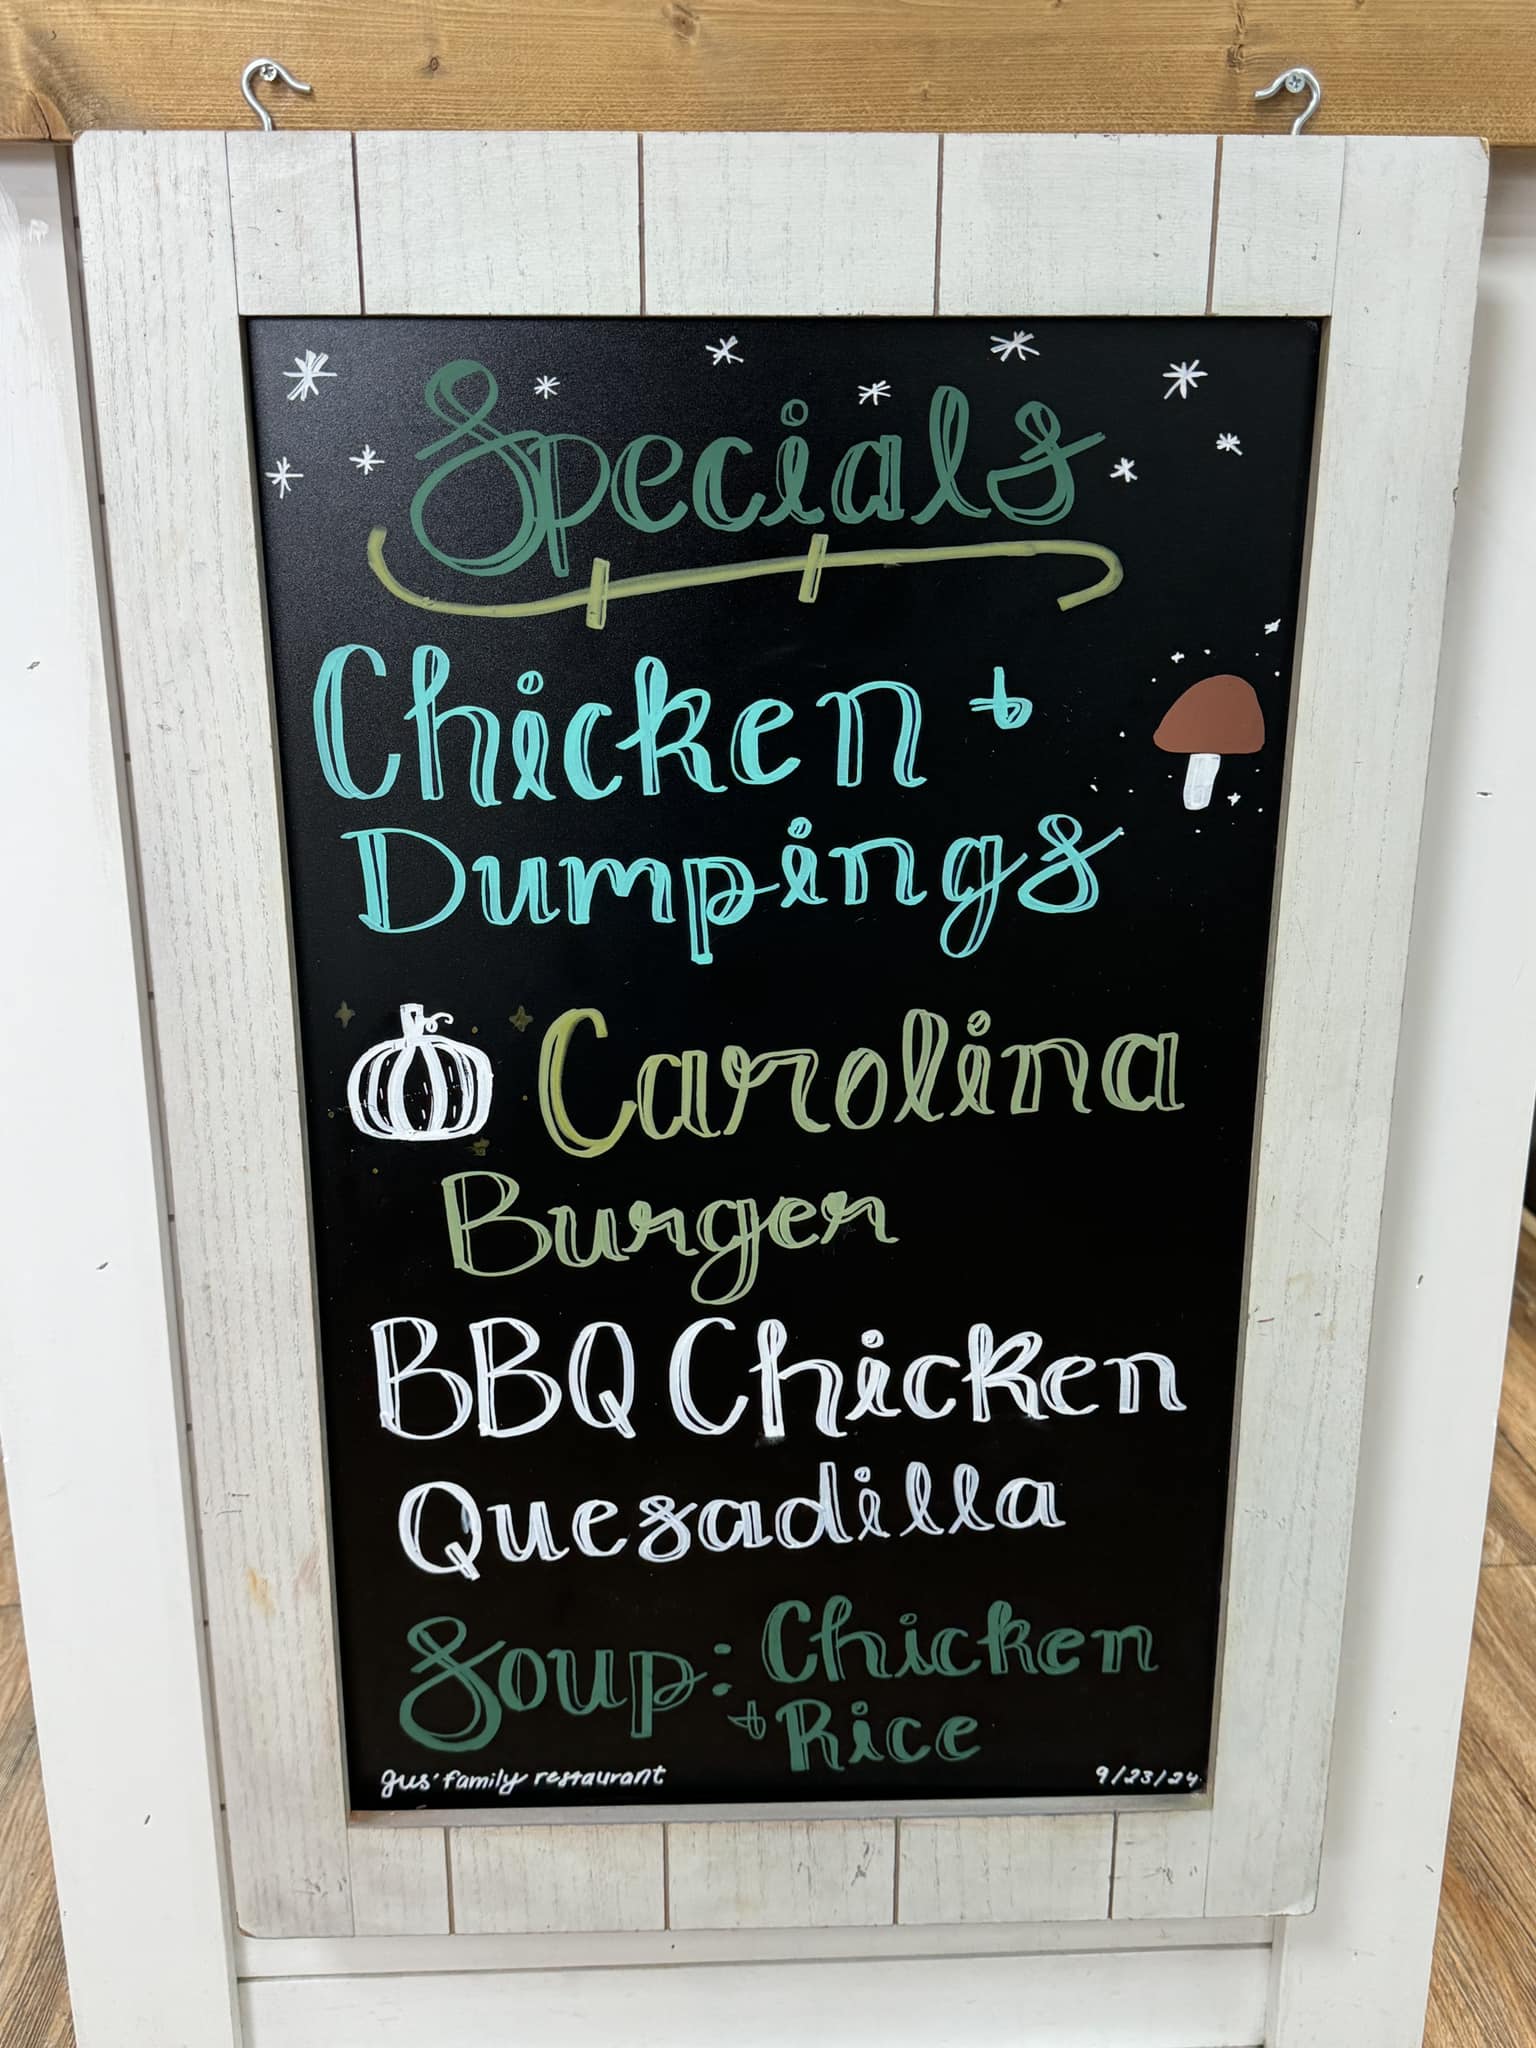 Specials
Chicken +
Dumpings
Carolina
Burger
BBQ Chicken
Quesadilla
Soup: Chicken
+ Rice
gus' family restaurant
9/23/24